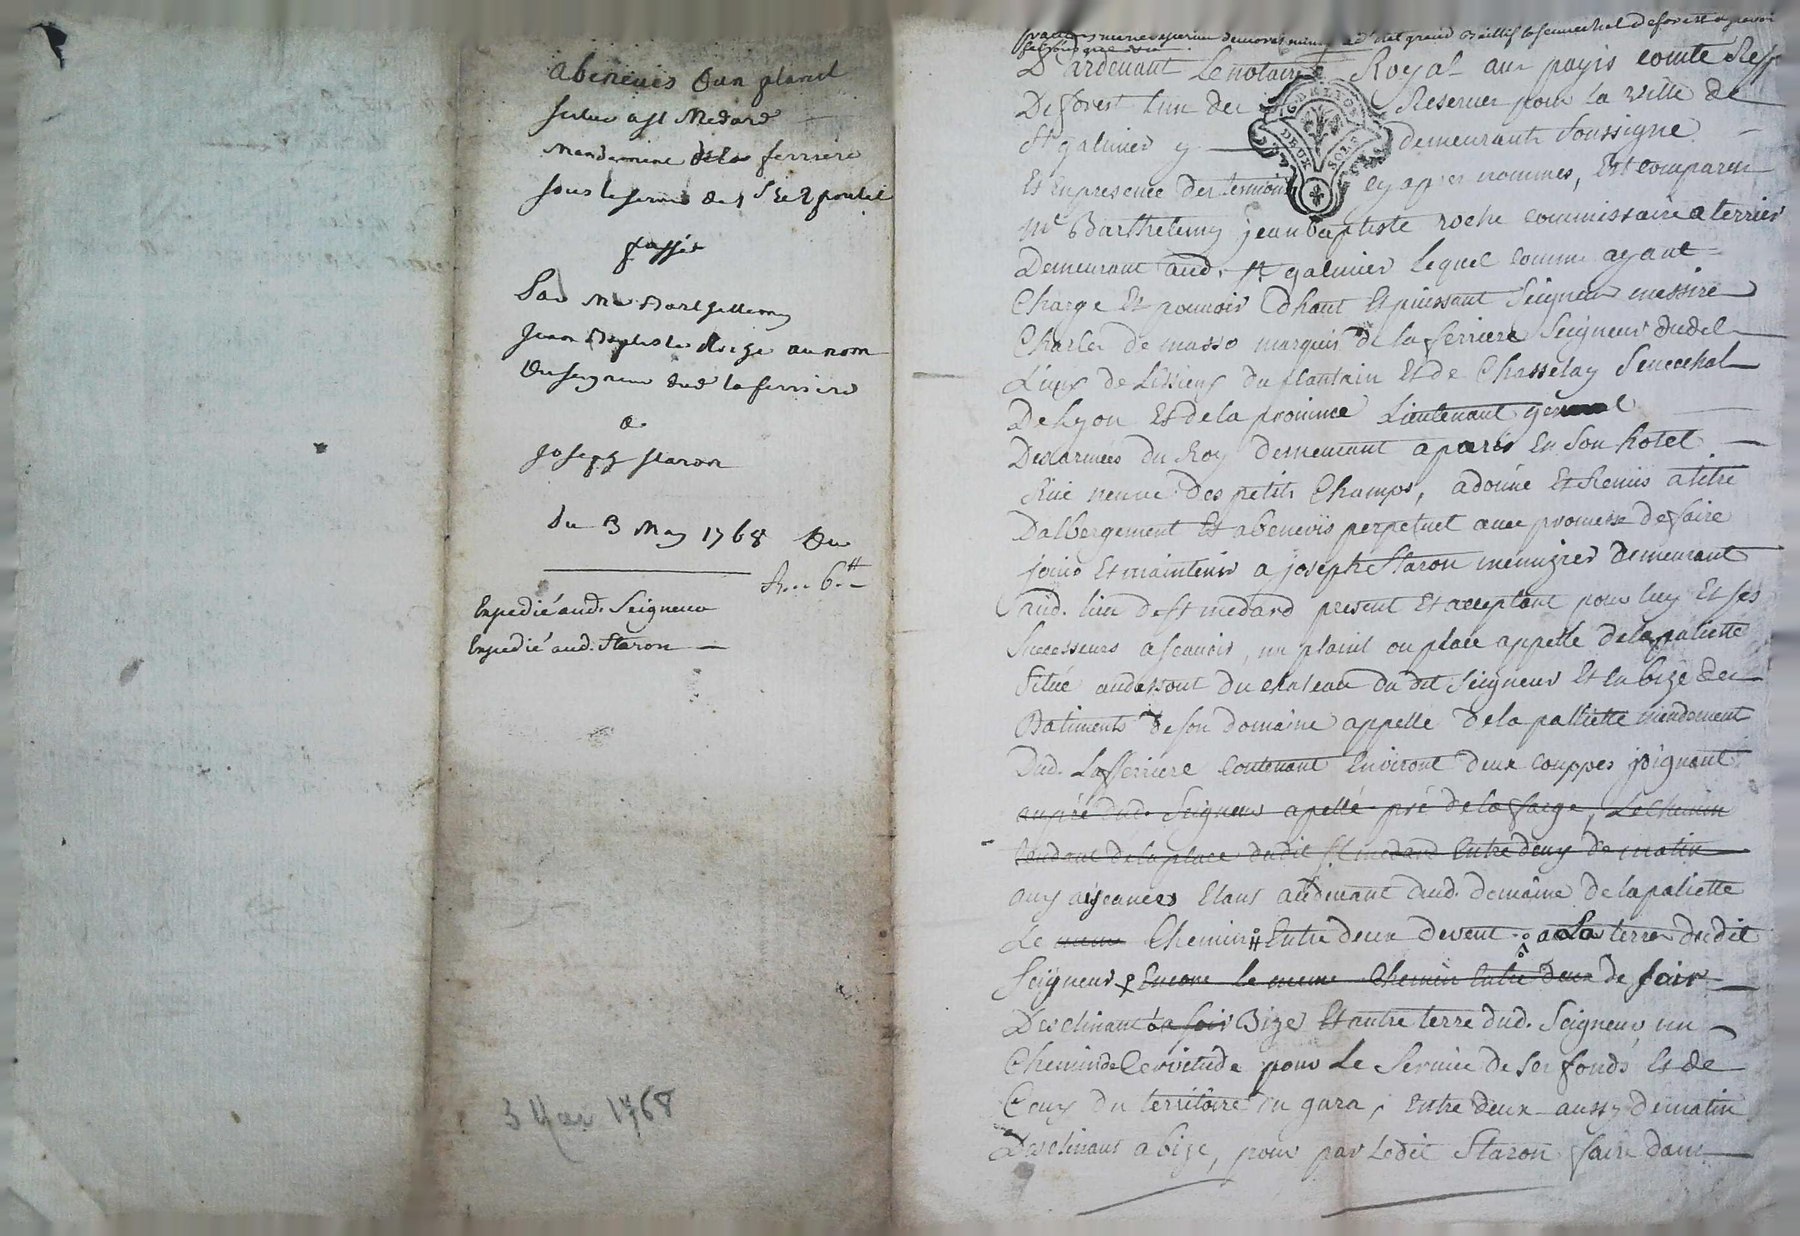 abeneuis d'un planil
situé a st Medard
Mandement dela ferriere
sous le servis de
passés
Par Me Barthellemy
Jean Baptiste Roche au nom
du seigneur dud. la ferriere
a
Joseph Staron
du 3 May 1768
6.#
Expedié aud. Seigneur
Expedié aud. Staron
3 May 1768
Pardeuant Le notaire Royal aux payis comté
De forest l'un des Reservés pour la ville de
St galmier y demeurant soussigné
Et en presence des temoins cy apres nommés, Est comparu
Mr Barthelemy jean baptiste roche commissaire a terrier
Demeurant aud. st galmier Lequel comme ayant
Charge Et pouvoir d'haut Et puissant Seigneur messire
Charles de masso marquis de la ferriere Seigneur dudit
Lieu de Lissieux du plantain Et de Chasselay Senechal
De Lyon Et de la province Lieutenant general
Des armées du Roy demeurant a paris En son hotel
Rue neuve des petits Champs, a donné Et Remis a titre
D'albergement Et abenevis perpetuel avec promesse de faire
jouir Et maintenir a joseph Staron menuzier demeurant
aud. lieu de st medard present Et acceptant pour luy Et ses
Successeurs a scauoir, un planil ou place appellé de la paliette
Situé audessout du chateau du dit Seigneur Et la bize des
Batiments de son domaine appellé de la palliette mendement
Dud. Lafferriere contenant Environt deux couppes joignant
au pré dud. Seigneur apellé pré de la farge, Le chemin
tendant de la place dudit st medard Entre deux de matin
aux aizeances Etant audevant dud. domaine de la paliette
Le meme Chemin Entre deux de vent a La terre du dit
Seigneur Encore le meme Chemin Entre deux de soir
Desclinant a soir Bize Et autre terre dud. Seigneur, un
Chemin de servitude pour Le Service de ses fonds Et de
Ceux du territoire du gara, Entre deux aussy de matin
Desclinant a bize, pour par Ledit Staron faire dans